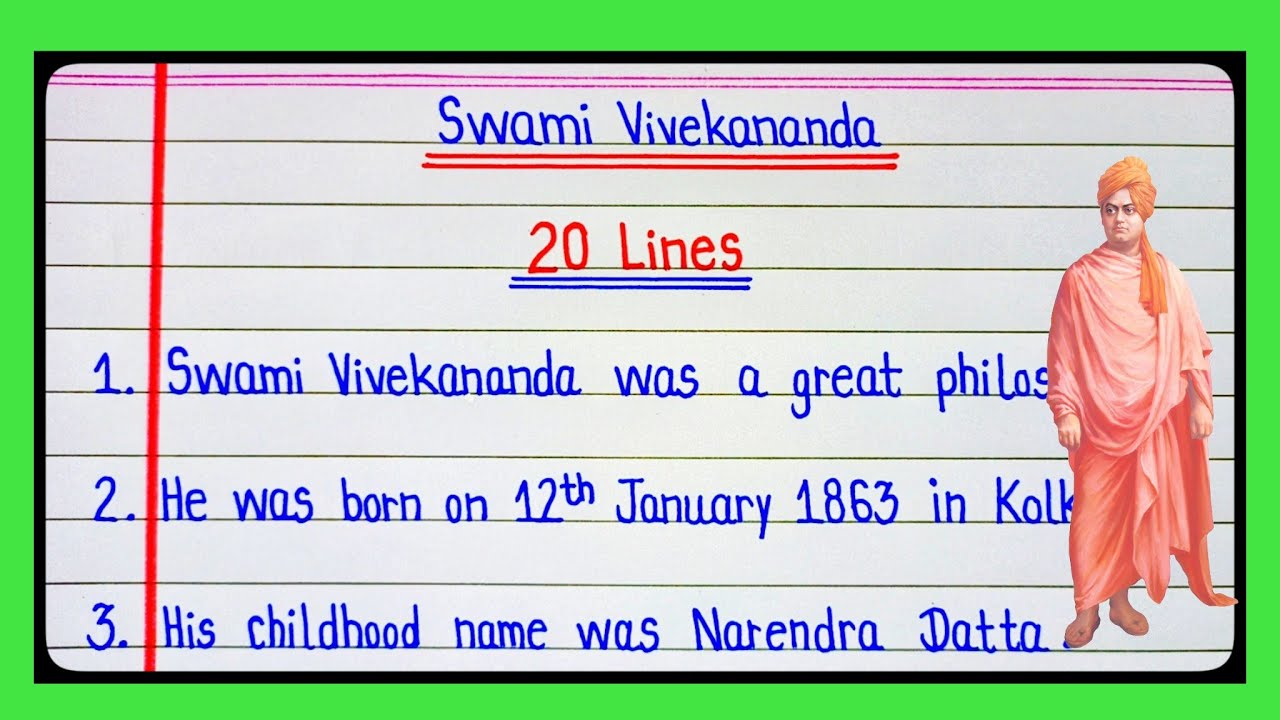 Swami Vivekananda
20 Lines
1. Swami Vivekananda was a great philos
2. He was born on 12th January 1863 in Kolk
3. His childhood name was Narendra Datta.